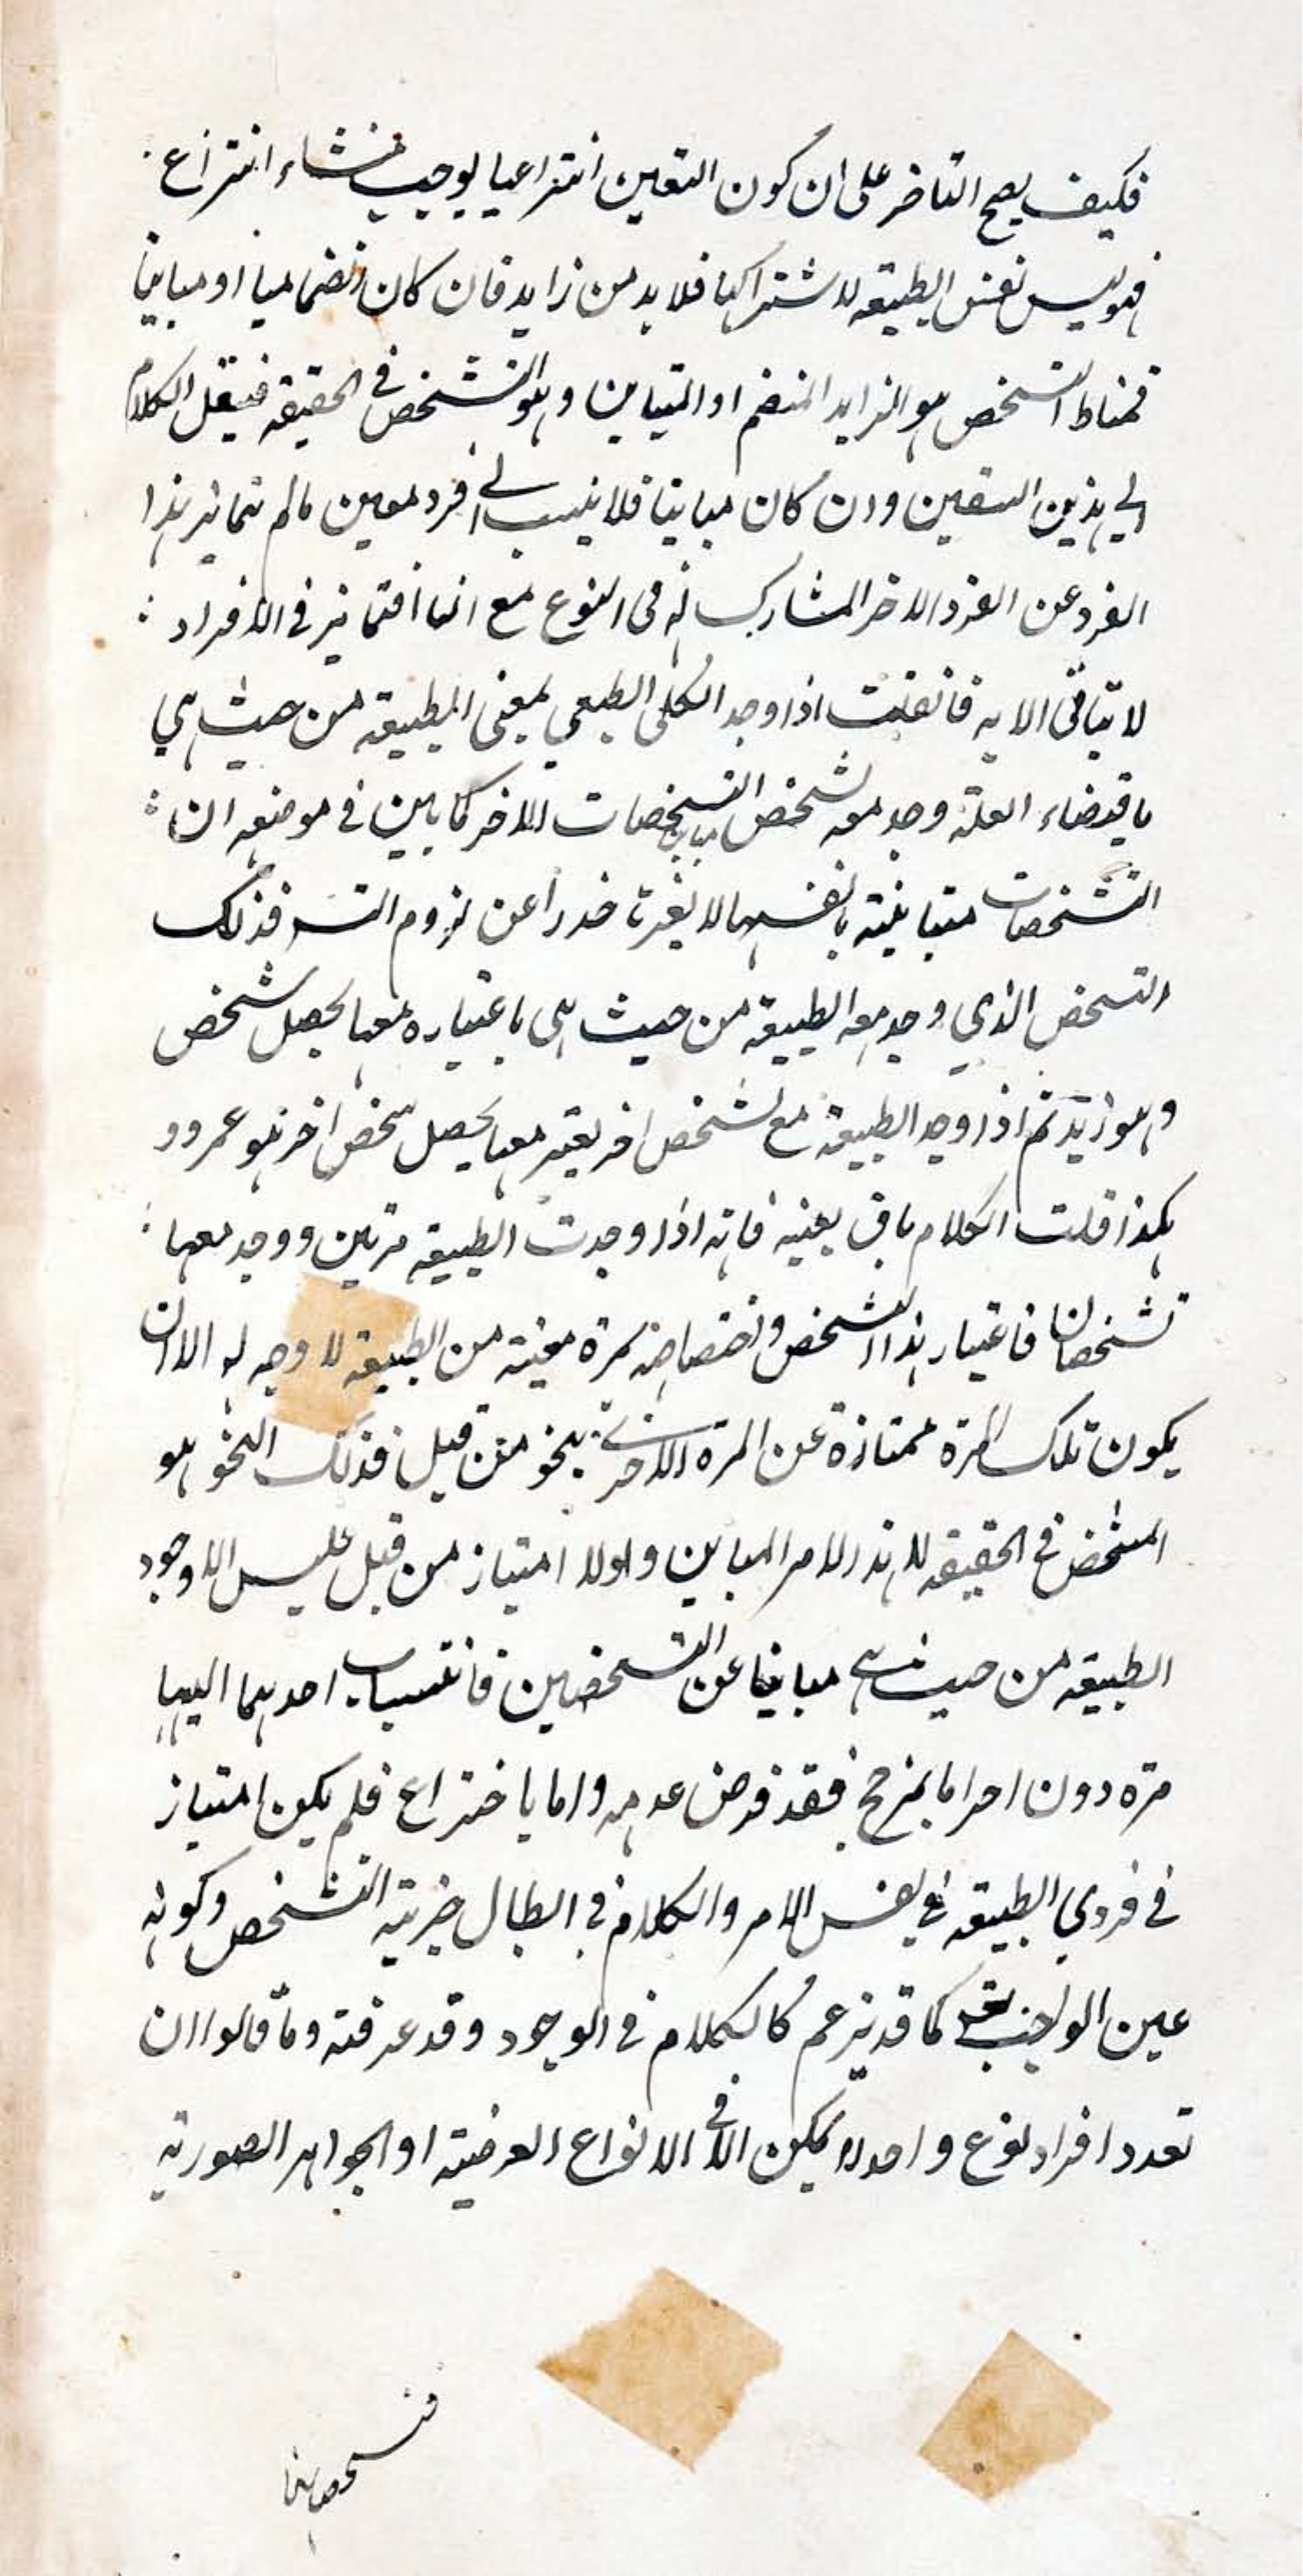 فكيف يصح التاخر على ان كون التعين انتزاعيا يوجب منشاء انتزاع
فهو ليس نفس الطبيعه لاشتراكها فلا بد من زايد فان كان انضماميا او مباينا
فمناط التشخص هو الزايد المنضم او المتباين وهو التشخص في الحقيقه فينقل الكلام
الي هذين التعين وان كان مباينا فلا ينسب الى فرد معين مالم يتمايز هذا
الفرد عن الفرد الاخر المشارك له في النوع مع انها في الافراد
لا الا به فانقلت اذا وجد الكلى الطبعي بمعنى الطبيعه من حيث هي
باقتضاء العلة وجد معه تشخص مباين التشخصات الاخر كما بين في موضعه ان
التشخصات متباينة بانفسها لا بغيرها حذرا عن لزوم التسـ فذلك
التشخص الذي وجد معه الطبيعه من حيث هى باعتباره معها يحصل شخص
وهو زيد ثم اذا وجد الطبيعه مع تشخص اخر يعتبر معها يحصل شخص اخر هو عمرو و
هكذا قلت الكلام باق بعينه فانه اذا وجدت الطبيعه مرتين ووجد معها
تشخصان فاعتبار هذا التشخص واختصاصه بمرة معينه من الطبيعه لا وجه له الا ان
يكون تلك المرة ممتازة عن المرة الاخرى بنحو من قبل فذلك النحو هو
المشخص في الحقيقه لا هذا الامر المباين ولو لا امتياز من قبل فليس الا وجود
الطبيعه من حيث هي مباينا عن التشخصين فانتساب احدهما اليها
مرة دون اخرى اما بمرجح فقد فرض عدمه واما باختراع فلم يكن امتياز
في فردي الطبيعه في نفس الامر والكلام في ابطال جزيية التشخص وكونه
عين الواجب كما قد يزعم كالكلام في الوجود وقد عرفته وما قالوا ان
تعدد افراد نوع واحد لا يمكن الا في الانواع العرضية او الجواهر الصورية